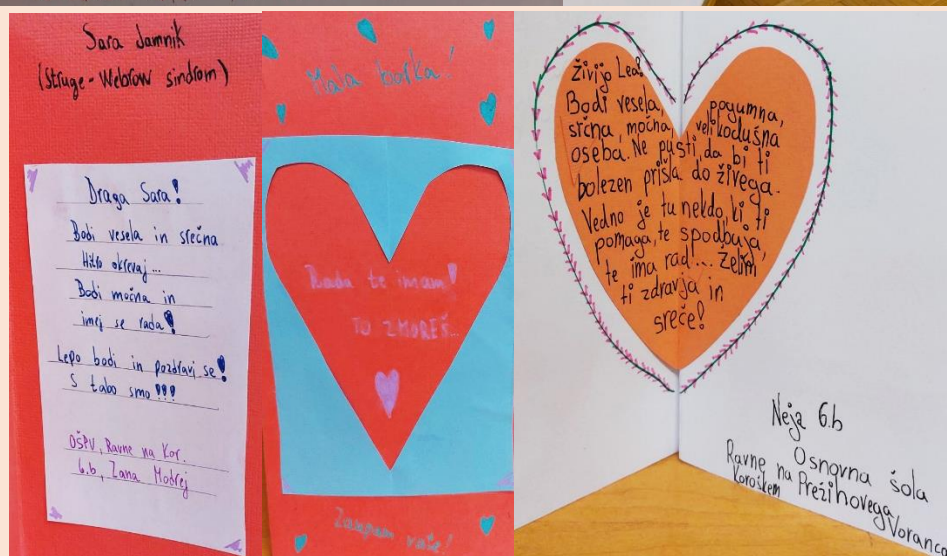 Sara Jamnik
(Struge-Webrow sindrom)
Draga Sara!
Bodi vesela in srečna
Hitro okrevaj...
Bodi močna in
imej se rada!
Lepo bodi in pozdravi se!
S tabo smo!!!
OŠPV, Ravne na Kor.
6.b, Zana Modrej
Moja borka!
Rada te imam!
TO ZMOREŠ...
Zaupam vate!
Živijo Lea!
Bodi vesela, pogumna,
srčna, močna, velikodušna
oseba. Ne pusti, da bi ti
bolezen prišla do živega.
Vedno je tu nekdo, ki ti
pomaga, te spodbuja,
te ima rad... Želim
ti zdravja in
sreče!
Neja 6.b
Osnovna šola
Prežihovega Voranca
Ravne na Koroškem